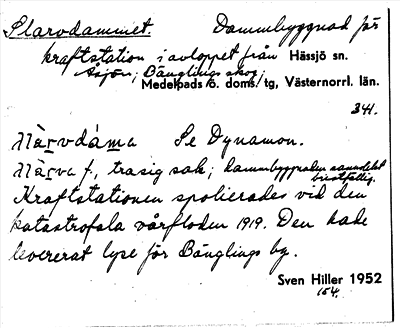 Slarvdammet. Dammbyggnad för
kraftstation i avloppet från Hässjö sn.
Åsjön; Bänglings skog;
Medelpads ö. doms. tg, Västernorrl. län.
341.
Slarvdammen Se Dynamon.
Slarva f., trasig sak; dammbyggnaden
bristfällig.
Kraftstationen spolierades vid den
katastrofala vårfloden 1919. Den hade
levererat lyse för Bänglings by.
Sven Hiller 1952
154.